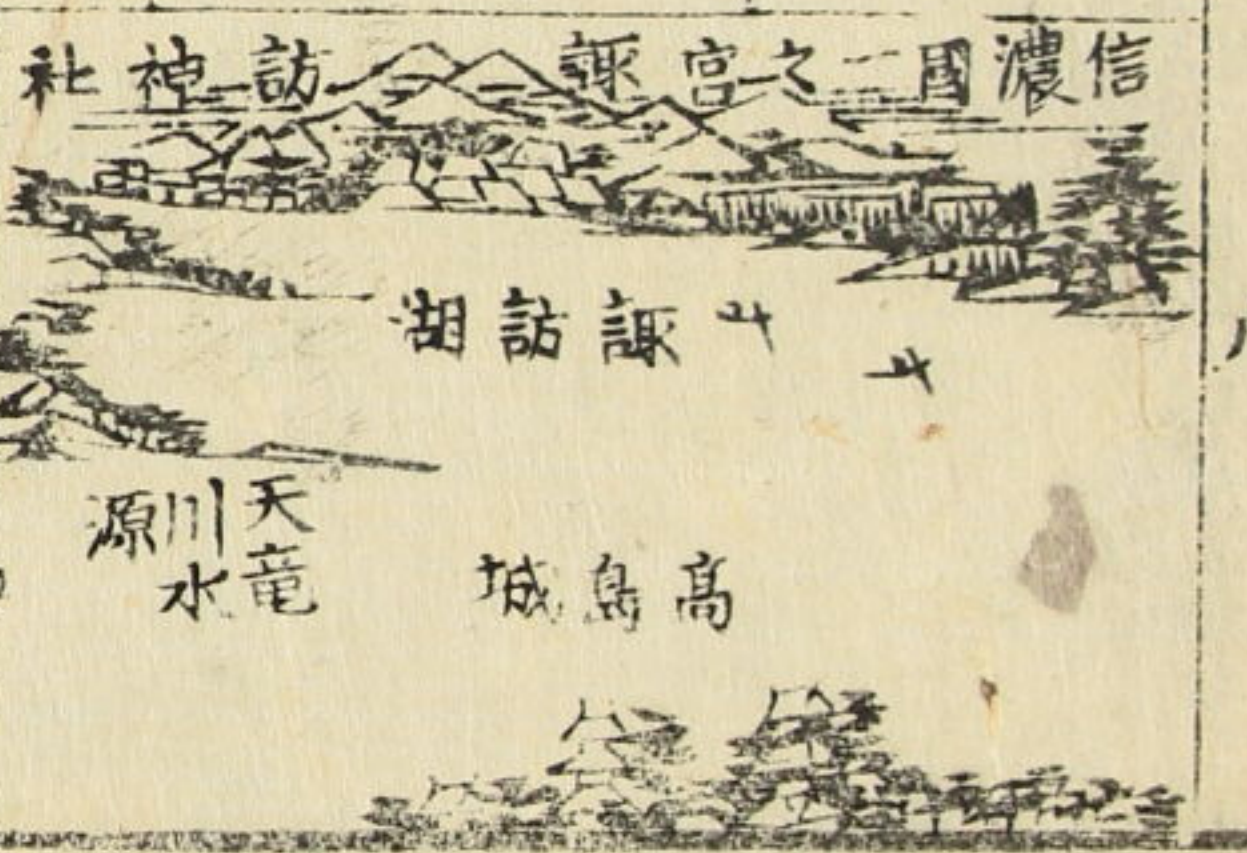 信濃國一之宮諏訪神社
諏訪湖
天竜
川水
源
髙島城